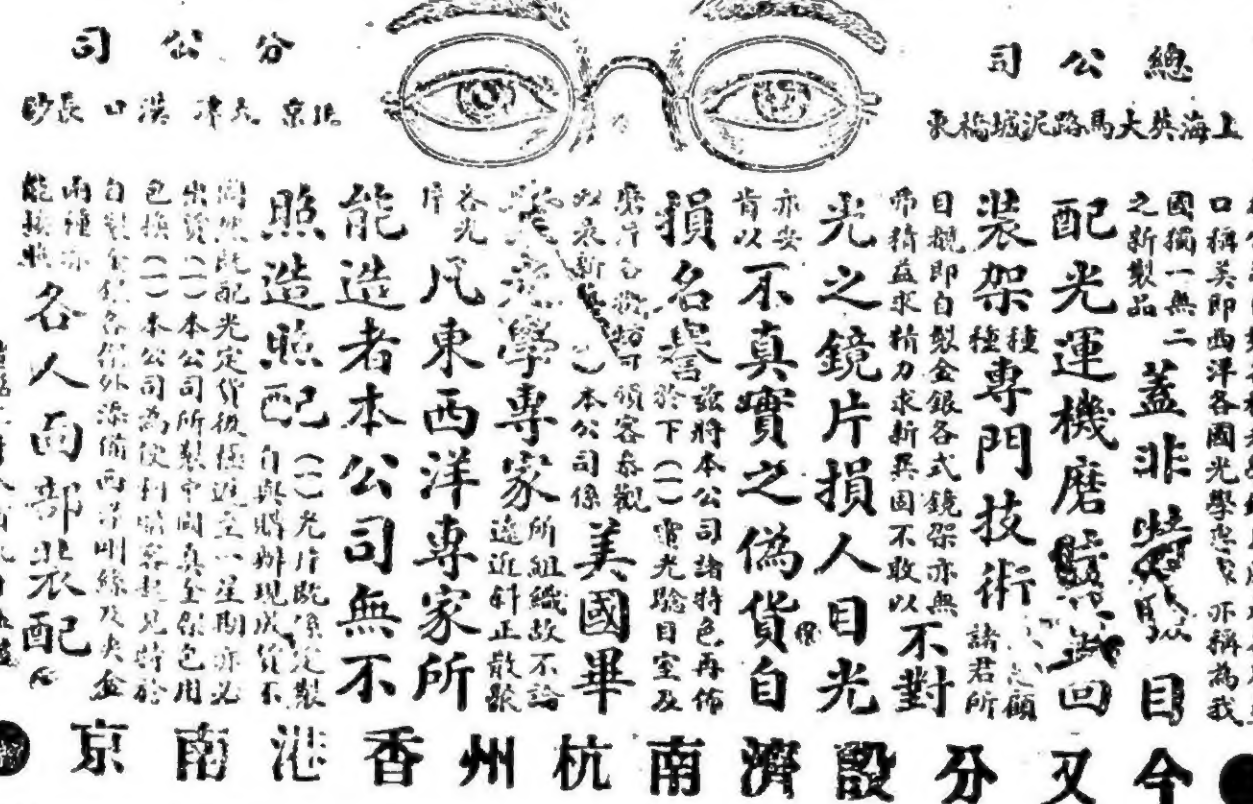 總公司
上海英大馬路泥城橋東
分公司
北京 天津 漢口 長沙
口稱美即西洋各國光學專家亦稱為我
國獨一無二
之新製品
蓋非 目
配光運機磨 回
裝架種種專門技術 諸君所 顧
目覩即自製金銀各式鏡架亦無
弗精益求精力求新異固不敢以不對
光之鏡片損人目光
亦安肯以不真實之偽貨自
損名譽茲將本公司諸特色再佈
於下(一)電光驗目室及
磨片各機類可領客參觀
以表新 (一)本公司係美國畢
業 學專家所組織故不論
遠近斜正散聚
各光片凡東西洋專家所
能造者本公司無不
照造照配(一)光片既係定製
自與購辦現成貨不
同然既配光定貨後極遲至一星期亦必
出貨(一)本公司所製中間真金架包用
包換(一)本公司為便利購客起見特於
自製金銀各架外添備西洋鋼絲及夾金
兩種亦
能按照各人面部裝配
今又分設濟南杭州香港南京